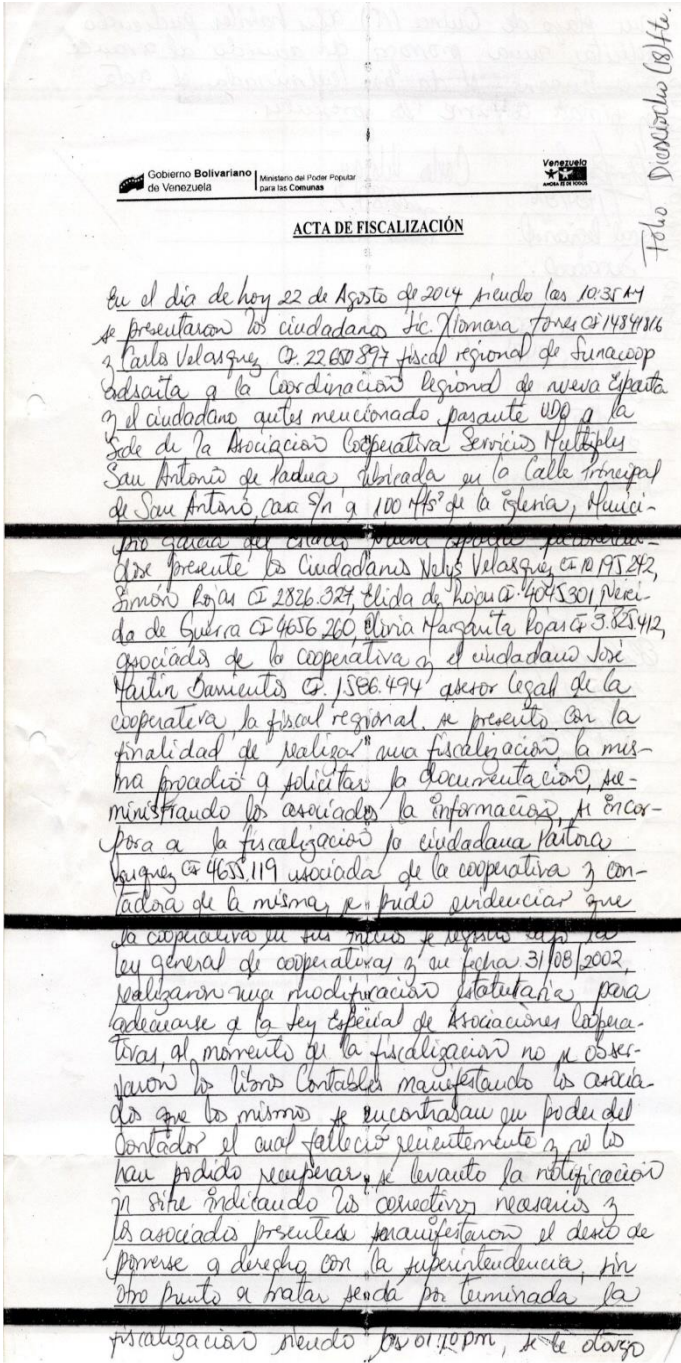 Folio Dieciocho (18) fte.
Gobierno Bolivariano de Venezuela
Ministerio del Poder Popular para las Comunas
Venezuela
AHORA ES DE TODOS
ACTA DE FISCALIZACIÓN
En el día de hoy 22 de Agosto de 2014 siendo las 10:35 AM
se presentaron los ciudadanos Lic. Xiomara Torres CI 14841816
y Carlos Velasquez CI. 22.650.897 fiscal regional de Sunacoop
adscrita a la Coordinación Regional de nueva Esparta
y el ciudadano antes mencionado pasante UDO a la
Sede de la Asociación Cooperativa Servicios Multiples
San Antonio de Padua ubicada en la Calle Principal
de San Antonio, casa S/n a 100 Mts² de la iglesia, Munici-
pio García del Estado Nueva Esparta
dose presente los Ciudadanos Velasquez CI 10.195.242,
Simón Rojas CI 2826.327, Elida de Rojas CI. 4045301, Nerei-
da de Guerra CI 4656.260, Olivia Margarita Rojas CI 3.825.412,
asociados de la cooperativa y el ciudadano José
Martin Barrientos CI. 1.586.494 asesor legal de la
cooperativa, la fiscal regional se presento con la
finalidad de realizar una fiscalización la mis-
ma procedió a solicitar la documentación, su-
ministrando los asociados la información, se incor-
pora a la fiscalización la ciudadana Pastora
CI 4655.119 asociada de la cooperativa y con-
tadora de la misma, se pudo evidenciar que
la cooperativa en sus inicios se registro bajo la
Ley general de cooperativas y en fecha 31/08/2002,
realizaron una modificación estatutaria para
adecuarse a la Ley Especial de Asociaciones Coopera-
tivas, al momento de la fiscalización no se obser-
varon los libros Contables manifestando los asocia-
dos que los mismos se encontraban en poder del
Contador el cual falleció recientemente y no los
han podido recuperar, se levanto la notificación
in sitie indicando los correctivos necesarios y
los asociados presentes manifestaron el deseo de
ponerse a derecho con la superintendencia, sin
otro punto a tratar se da por terminada la
fiscalización siendo las 01:10 pm, se le otorgo